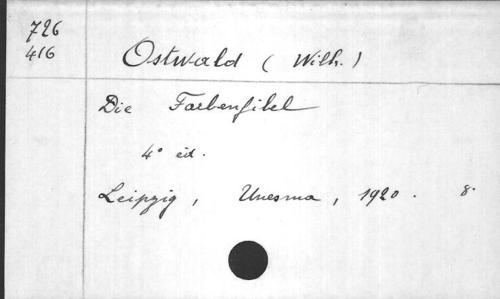 726
416
Ostwald ( Wilh. )
Die Farbenfibel
4° éd.
Leipzig, Unesma, 1920. 8°